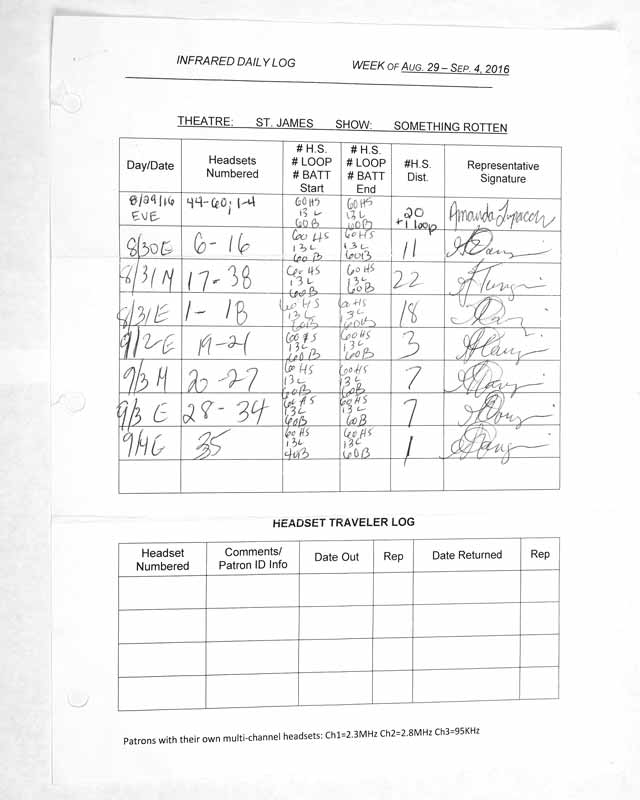 INFRARED DAILY LOG WEEK OF AUG. 29 – SEP. 4, 2016
THEATRE: ST. JAMES SHOW: SOMETHING ROTTEN
Day/Date Headsets Numbered # H.S. # LOOP # BATT Start # H.S. # LOOP # BATT End #H.S. Dist. Representative Signature
8/29/16 EVE 44-60; 1-4 60HS 13L 60B 60HS 13L 60B 20 +1 loop Amanda
8/30E 6-16 60HS 13L 60B 60HS 13L 60B 11
8/31M 17-38 60HS 13L 60B 60HS 13L 60B 22
8/31E 1-18 60HS 13L 60B 60HS 13L 60B 18
9/2E 19-21 60HS 13L 60B 60HS 13L 60B 3
9/3M 20-27 60HS 13L 60B 60HS 13L 60B 7
9/3E 28-34 60HS 13L 60B 60HS 13L 60B 7
9/4E 35 60HS 13L 60HS 13L 60B 1
HEADSET TRAVELER LOG
Headset Numbered Comments/ Patron ID Info Date Out Rep Date Returned Rep
Patrons with their own multi-channel headsets: Ch1=2.3MHz Ch2=2.8MHz Ch3=95KHz